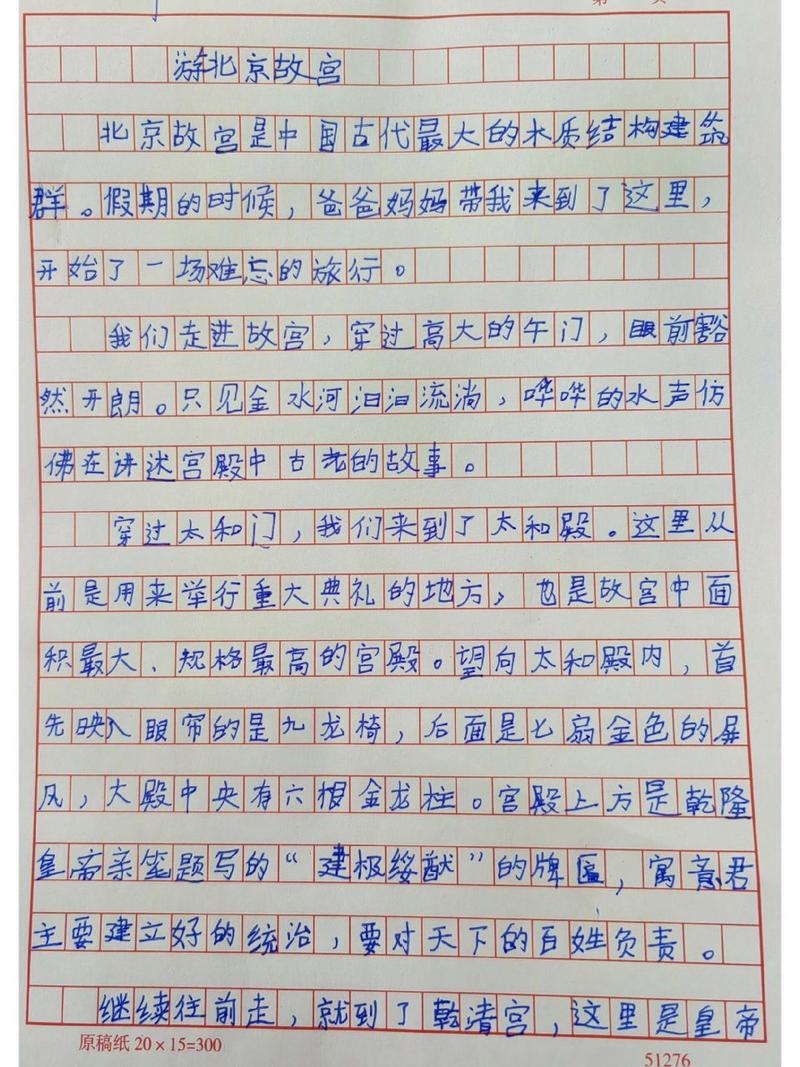 游北京故宫
北京故宫是中国古代最大的木质结构建筑
群。假期的时候，爸爸妈妈带我来到了这里，
开始了一场难忘的旅行。
我们走进故宫，穿过高大的午门，眼前豁
然开朗。只见金水河汩汩流淌，哗哗的水声仿
佛在讲述宫殿中古老的故事。
穿过太和门，我们来到了太和殿。这里从
前是用来举行重大典礼的地方，也是故宫中面
积最大、规格最高的宫殿。望向太和殿内，首
先映入眼帘的是九龙椅，后面是七扇金色的屏
风，大殿中央有六根金龙柱。宫殿上方是乾隆
皇帝亲笔题写的“建极绥猷”的牌匾，寓意君
主要建立好的统治，要对天下的百姓负责。
继续往前走，就到了乾清宫，这里是皇帝
原稿纸20×15=300
51276